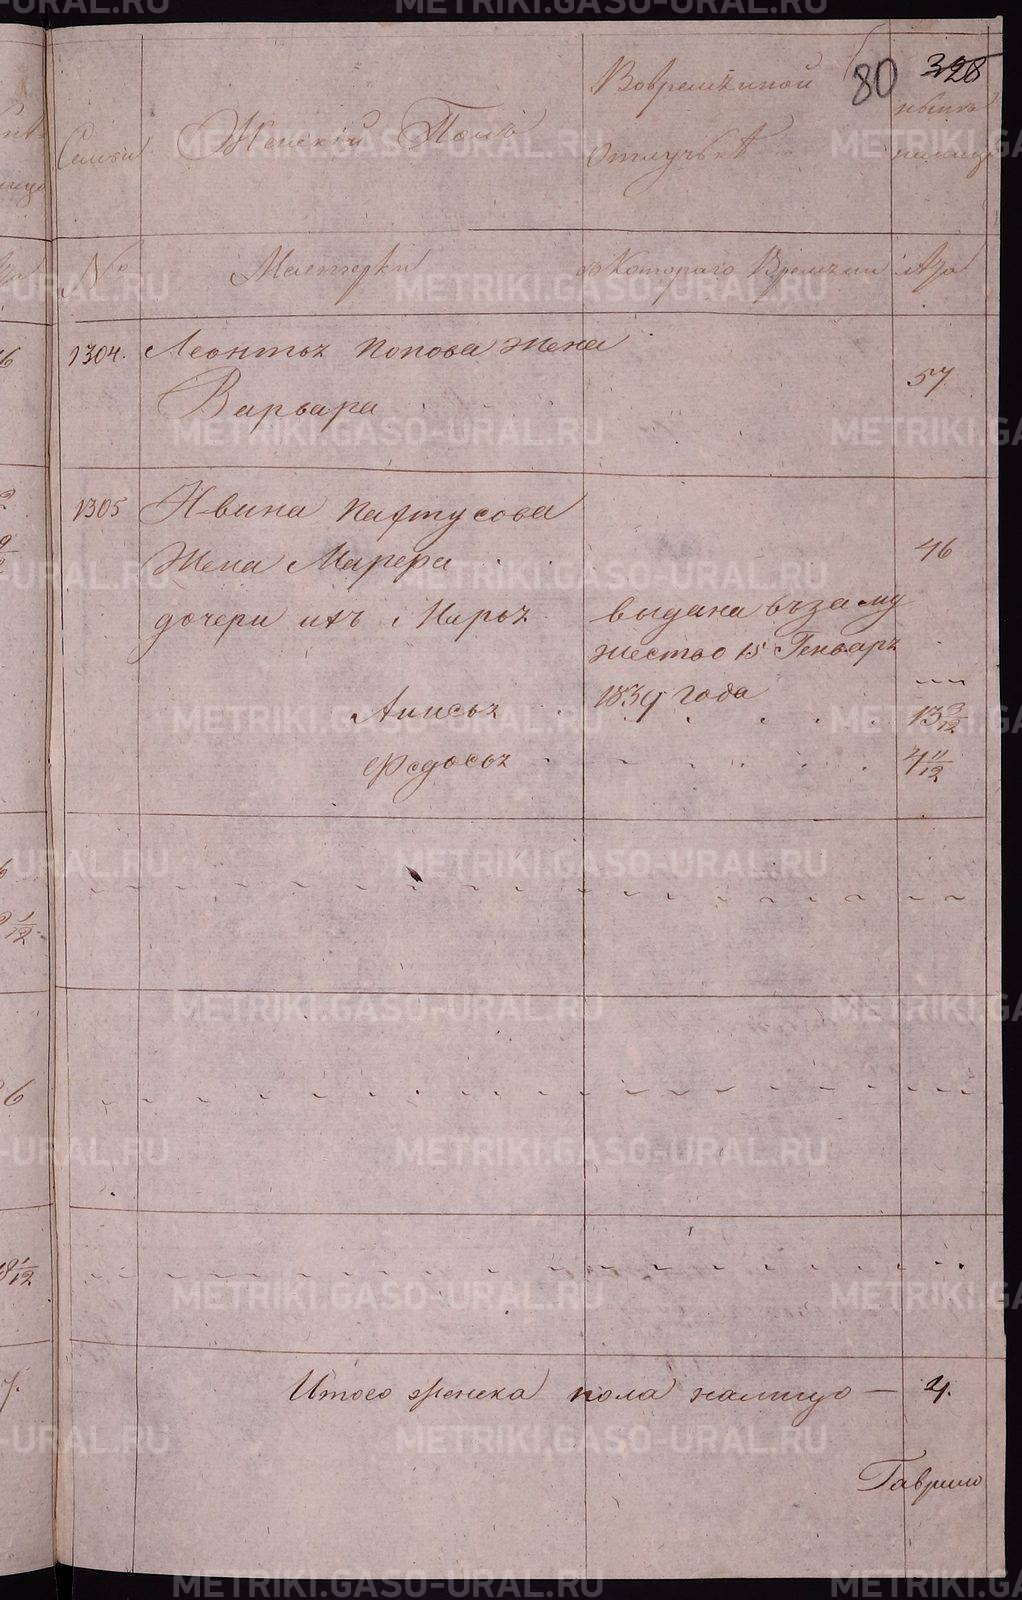 80 328
Семьи Женскій Полъ Вовременной отлучькѣ ныне налицо
№ Мастерки съ Котораго Времени Лѣта
1304. Леонтьѣ Попова жена
57
Варвара
1305 Ивина Пафтусова
Жена Марфра 46
дочери ихъ Марьѣ выдана въ заму
жество 15 Генваря
1839 года
Анисьѣ 13 3/12
Федосьѣ 4 11/12
Итого женска пола налицо — 4.
Гаврило
METRIKI.GASO-URAL.RU